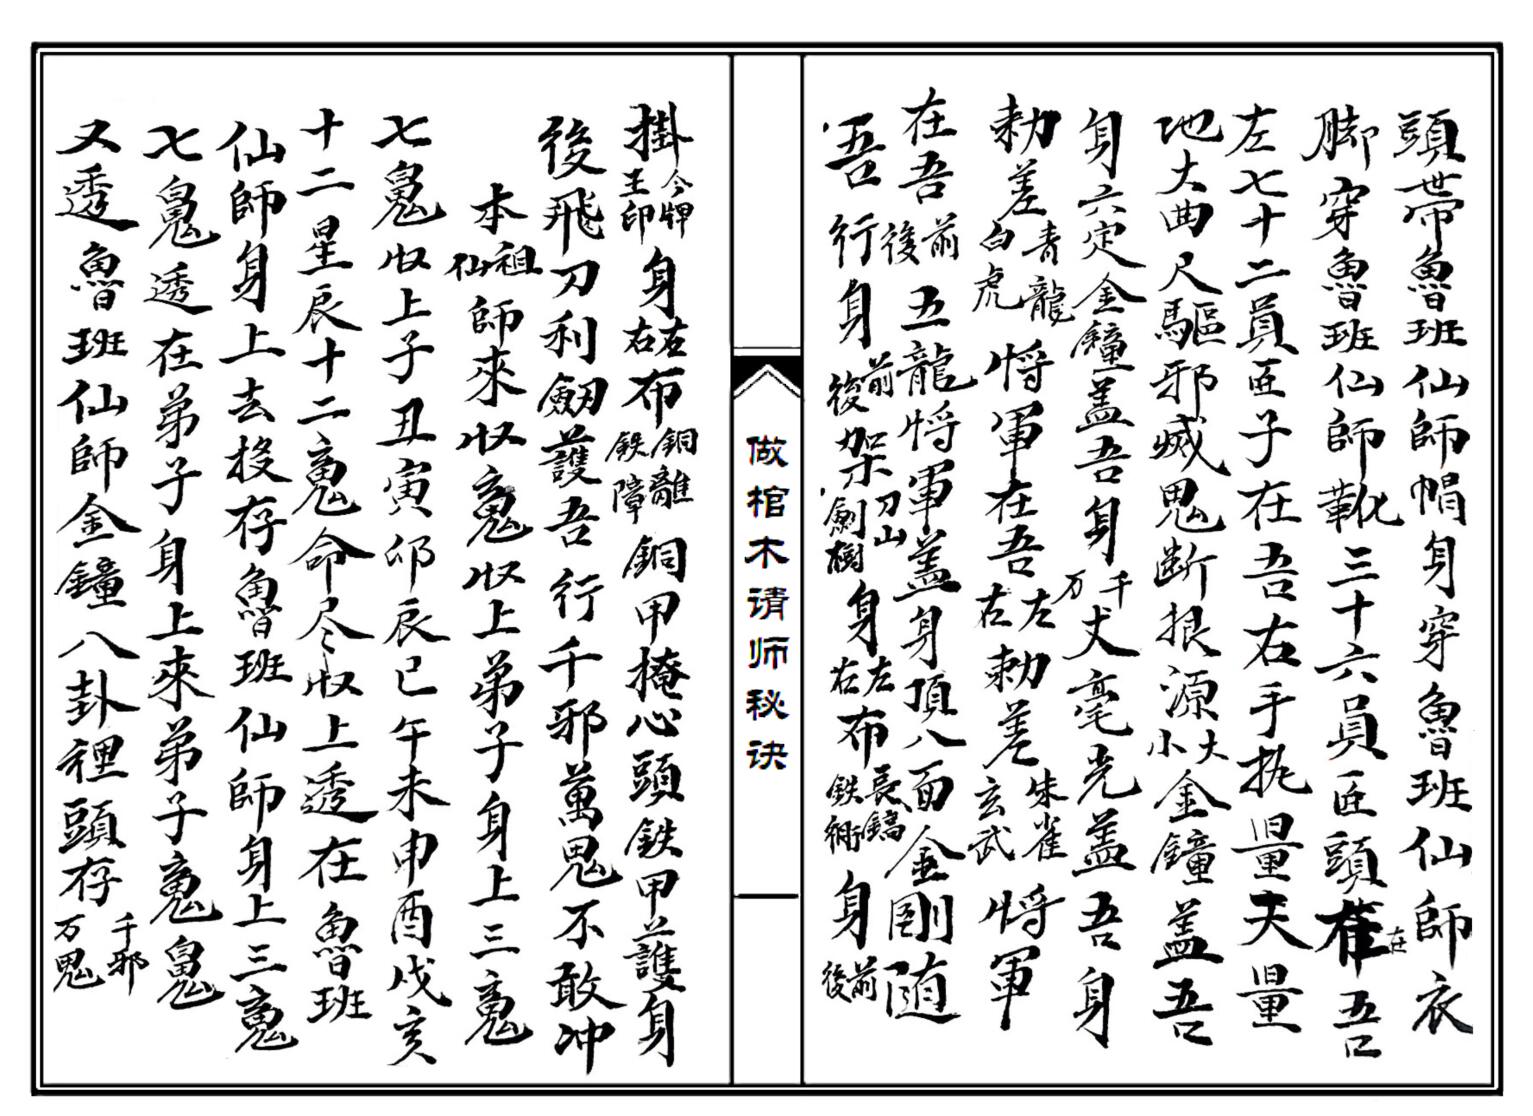 頭带魯班仙師帽身穿魯班仙師衣
脚穿魯班仙師靴三十六員匠頭在吾
左七十二員匠子在吾右手执量天量
地大曲尺驅邪滅鬼断根源大小金鐘盖吾
身六定金鐘盖吾身千万丈毫光盖吾身
勅差青龍白虎将軍在吾左右勅差朱雀玄武将軍
在吾前後五龍将軍盖身頂八面金剛随
吾行身前後架刀山劍樹身左右布長鎗鉄衕身前後
做棺木请师秘诀
掛令牌玉印身左右布銅離鉄障銅甲掩心頭鉄甲護身
後飛刀利劒護吾行千邪萬鬼不敢冲
本祖仙師來收魂收上弟子身上三魂
七魄收上子丑寅卯辰巳午未申酉戌亥
十二星辰十二魂命尽收上透在魯班
仙師身上去投存魯班仙師身上三魂
七魄透在弟子身上來弟子魂魄
又透魯班仙師金鐘八卦裡頭存千邪万鬼